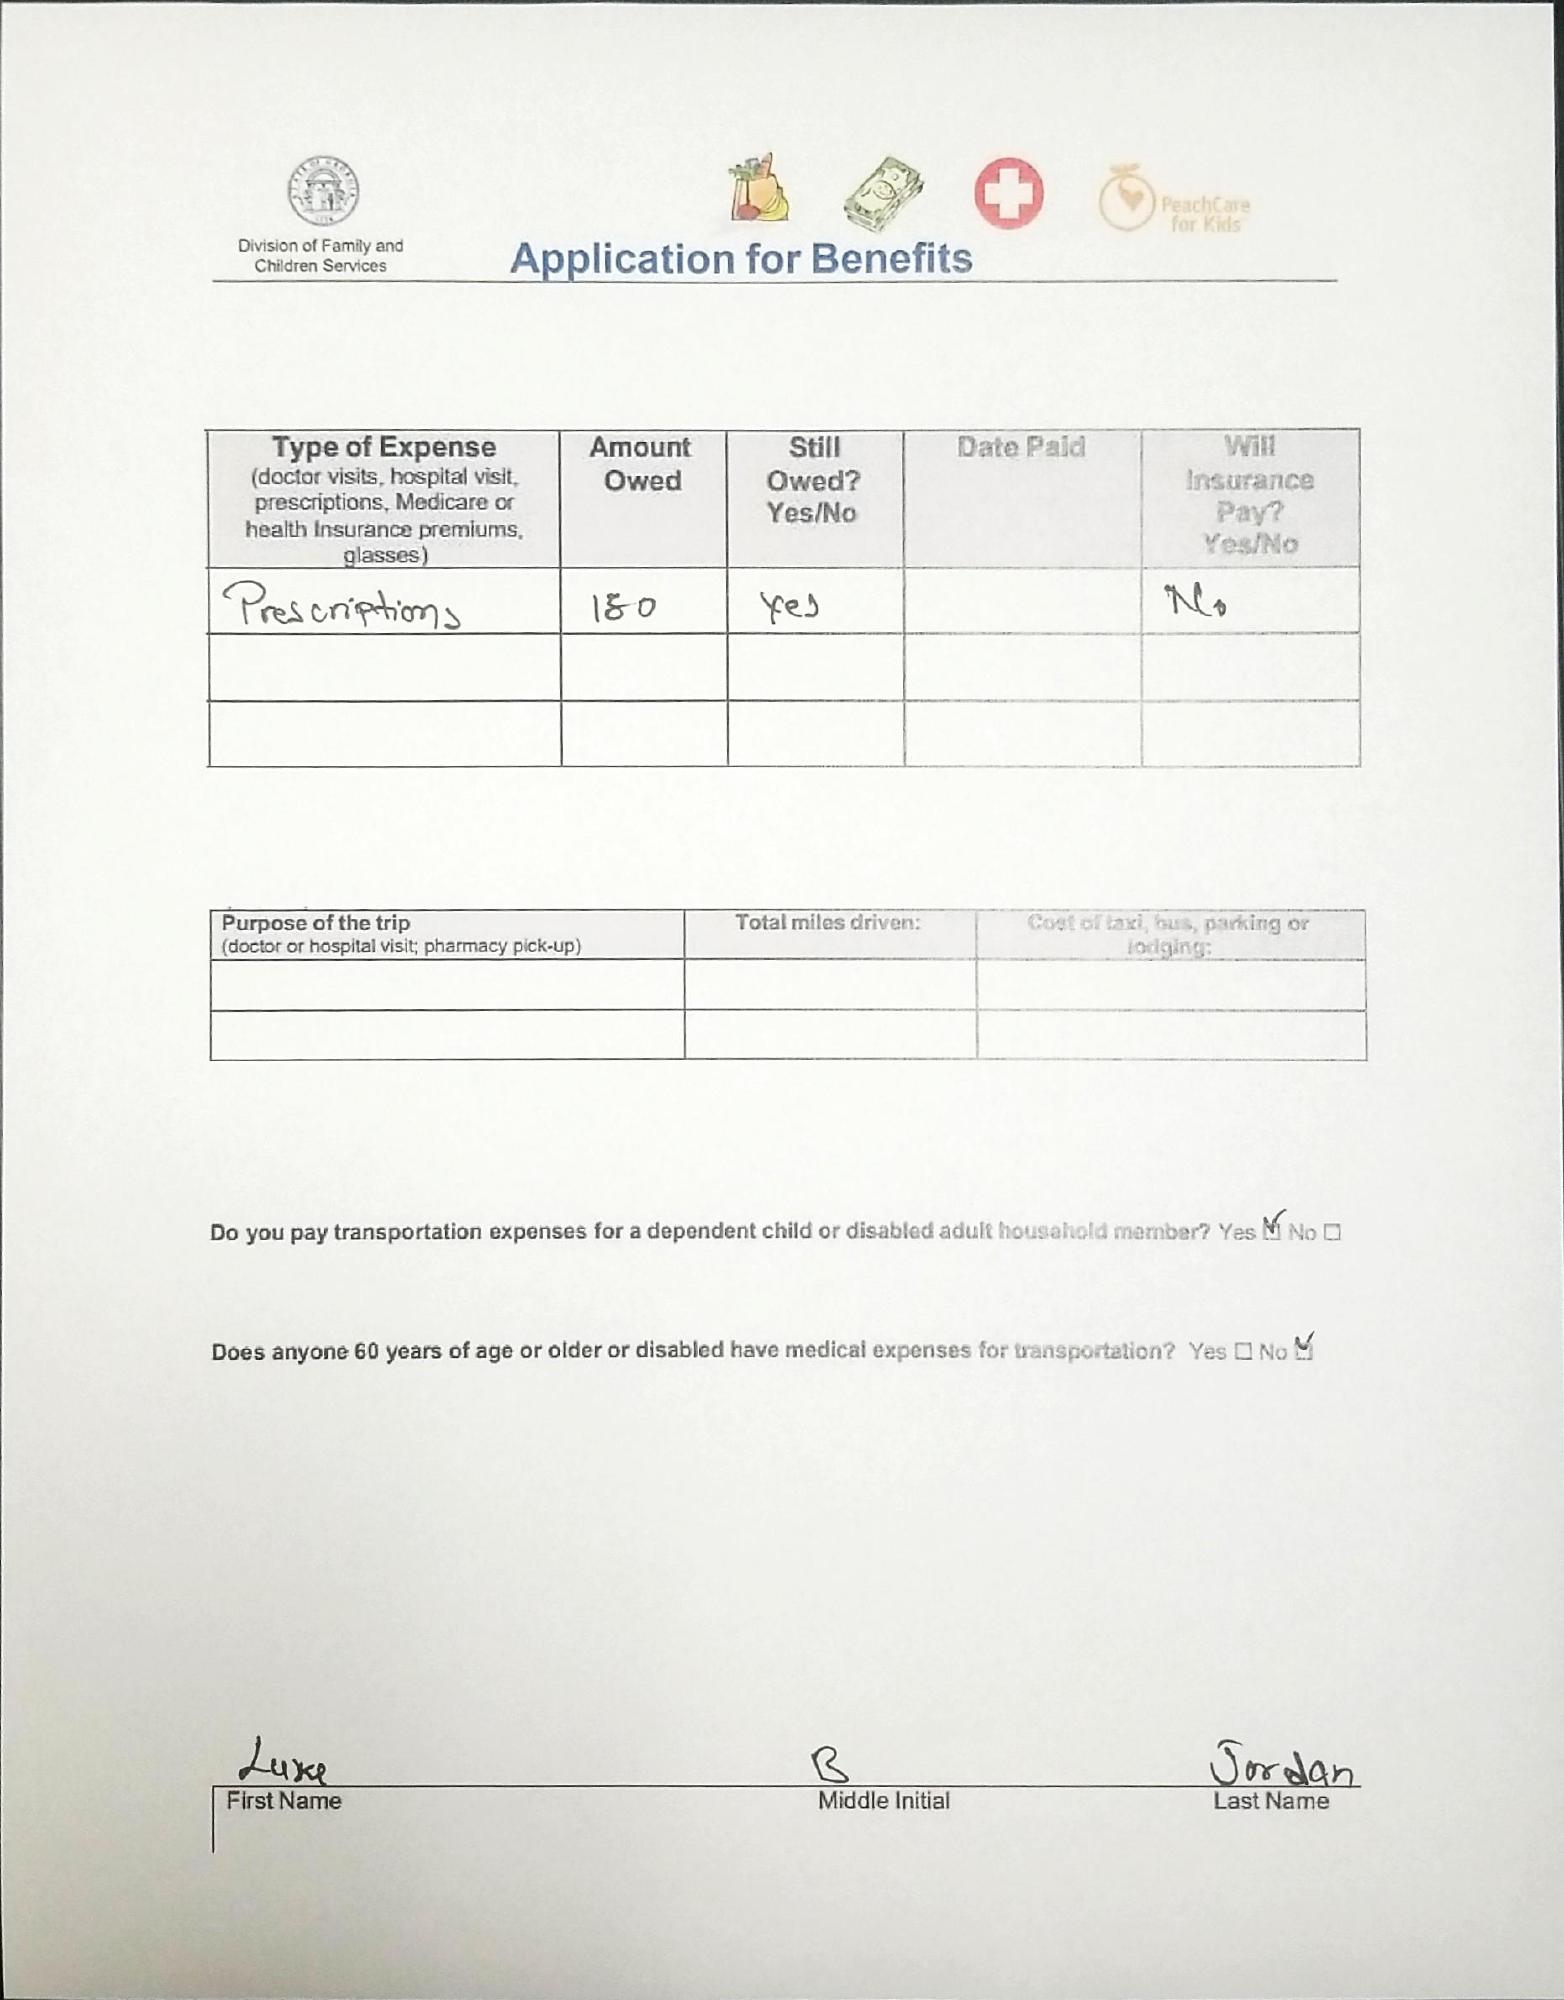 STATE OF GEORGIA
1776
Division of Family and
Children Services
Application for Benefits
PeachCare
for Kids
Type of Expense
(doctor visits, hospital visit,
prescriptions, Medicare or
health Insurance premiums,
glasses)
Amount
Owed
Still
Owed?
Yes/No
Date Paid
Will
Insurance
Pay?
Yes/No
Prescriptions 180 Yes No
Purpose of the trip
(doctor or hospital visit; pharmacy pick-up)
Total miles driven:
Cost of taxi, bus, parking or
lodging:
Do you pay transportation expenses for a dependent child or disabled adult household member? Yes ☑ No ☐
Does anyone 60 years of age or older or disabled have medical expenses for transportation? Yes ☐ No ☑
Luke B Jordan
First Name Middle Initial Last Name